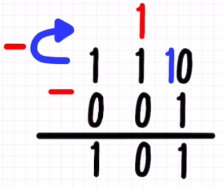 1
− 1 1 10
− 0 0 1
1 0 1